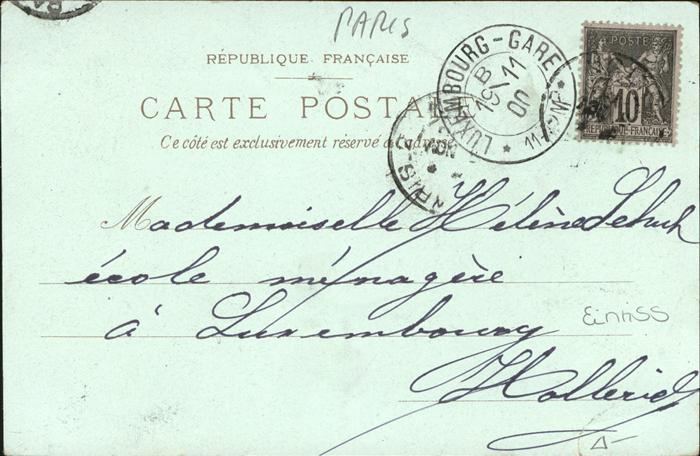 PARIS
RÉPUBLIQUE FRANÇAISE
CARTE POSTALE
Ce côté est exclusivement réservé à l'adresse
LUXEMBOURG-GARE
B
15/11
00
POSTE
10
RÉPUBLIQUE FRANÇAISE
PARIS
Mademoiselle Hélène
école ménagère
à Luxembourg
Einriss
Hollerich